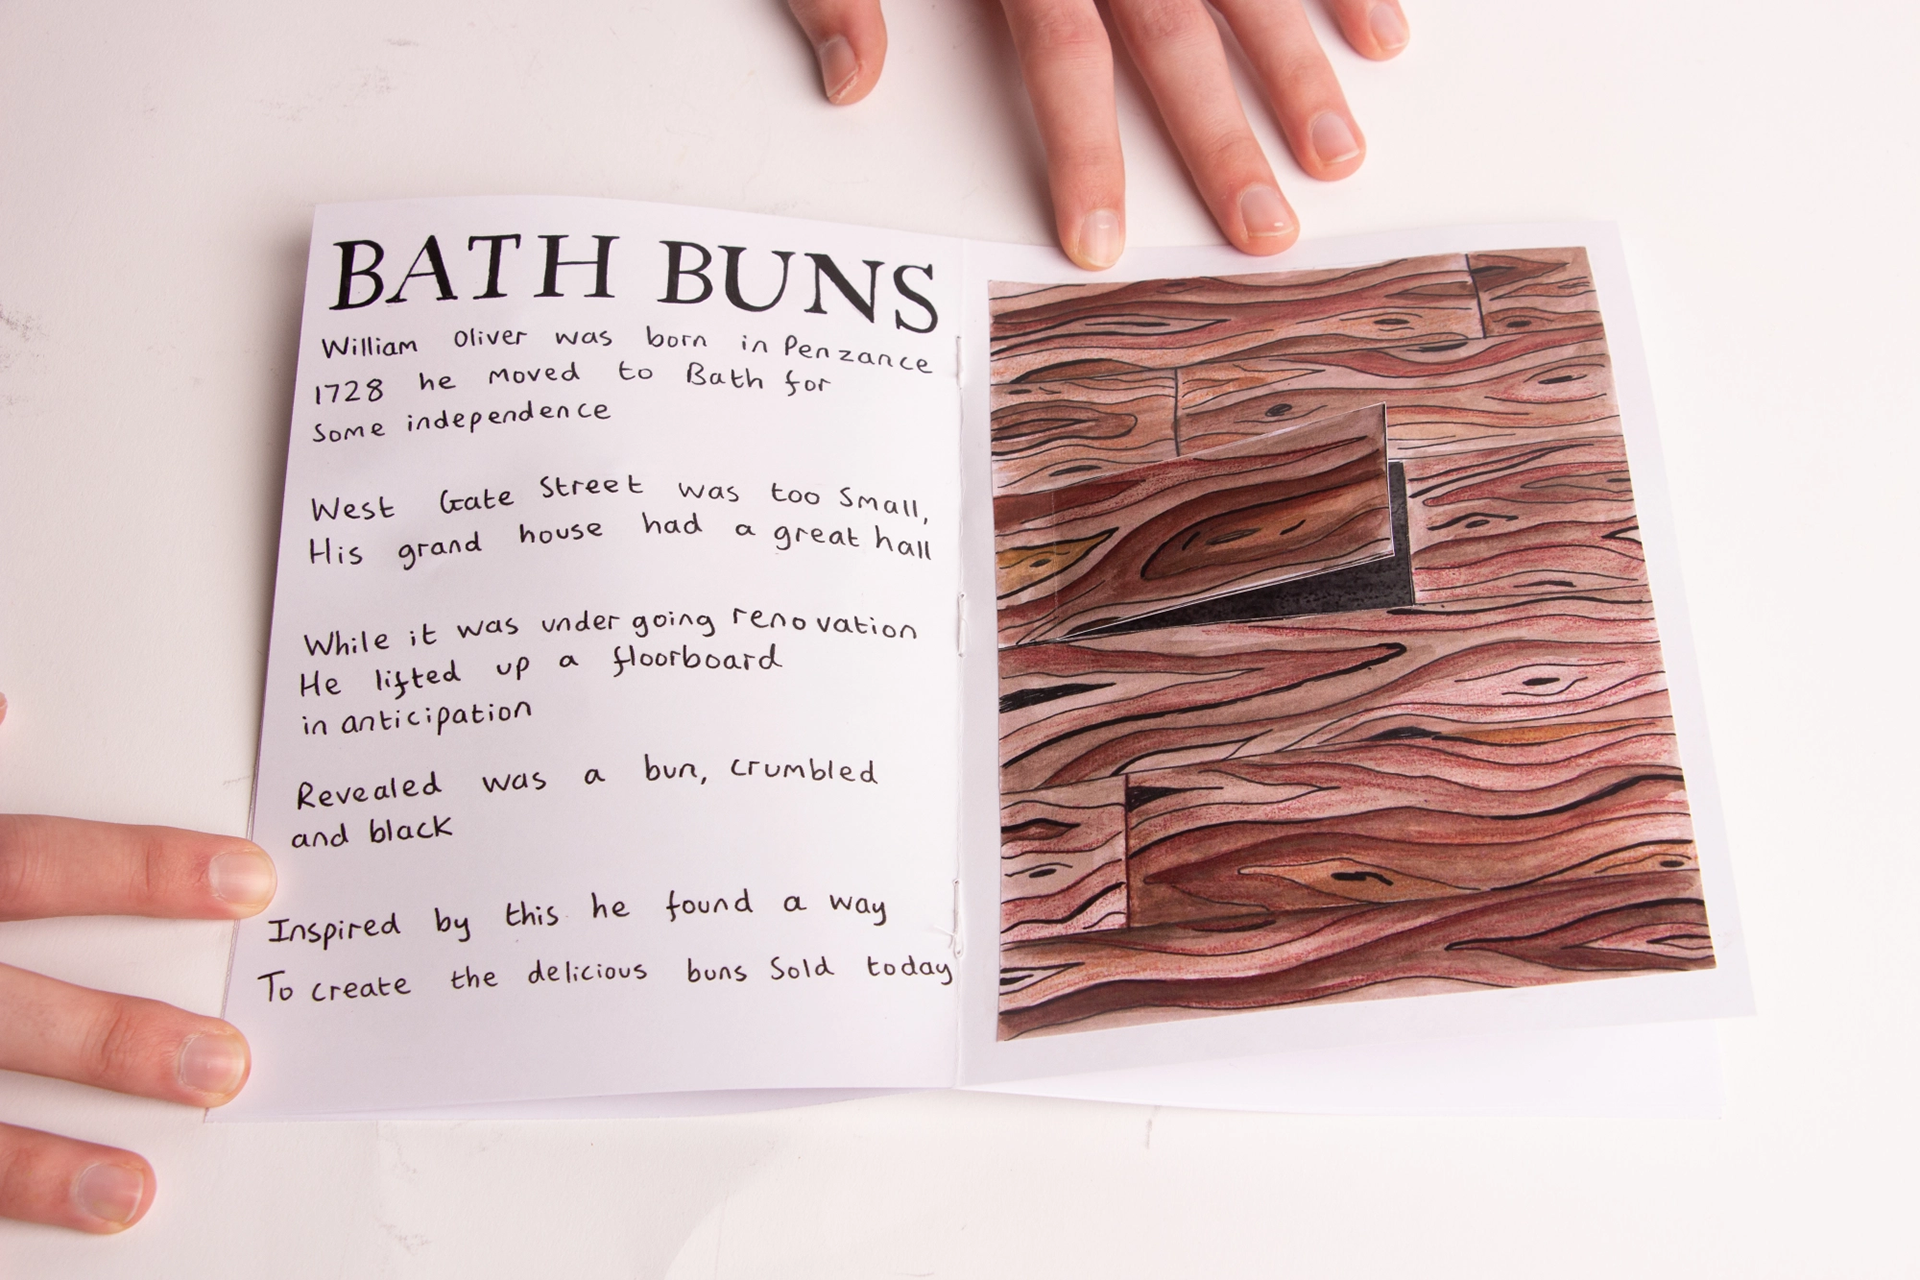 BATH BUNS
William Oliver was born in Penzance
1728 he moved to Bath for
Some independence
West Gate Street was too Small,
His grand house had a great hall
While it was under going renovation
He lifted up a floorboard
in anticipation
Revealed was a bun, crumbled
and black
Inspired by this he found a way
To create the delicious buns Sold today